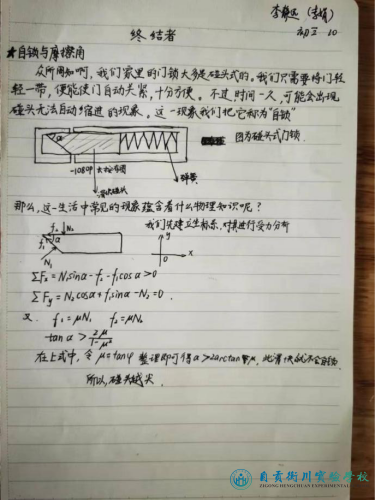 终结者
初三-10
★自锁与摩擦角
众所周知啊，我们家里的门锁大多是碰头式的。我们只需要将门轻
轻一带，便能使门自动关紧，十分方便。不过，时间一久，可能会出现
碰头无法自动缩进的现象。这一现象我们把它称为"自锁"
α
因为碰头式门锁
弹簧
那么，这一生活中常见的现象蕴含着什么物理知识呢？
f₂ N₂
f₁ α
N₁
y
x
我们先建立坐标系，对其进行受力分析
ΣFx = N₁sinα - f₂ - f₁cosα > 0
ΣFy = N₁cosα + f₁sinα - N₂ = 0
又 f₁ = μN₁ f₂ = μN₂
tanα > 2μ/(1-μ²)
在上式中，令 μ = tanφ 整理即可得 α > 2arctanμ，此滑块就不会自锁
所以，碰头越尖
自贡衡川实验学校
ZIGONG HENGCHUAN EXPERIMENTAL